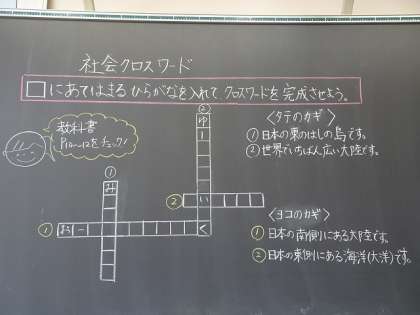 社会クロスワード
□にあてはまるひらがなを入れてクロスワードを完成させよう。
教科書
をチェック!
〈タテのカギ〉
① 日本の東のはしの島です。
② 世界でいちばん広い大陸です。
〈ヨコのカギ〉
① 日本の南側にある大陸です。
② 日本の東側にある海洋(大洋)です。
②
ゆ
ー
①
み
② い
① お ー く